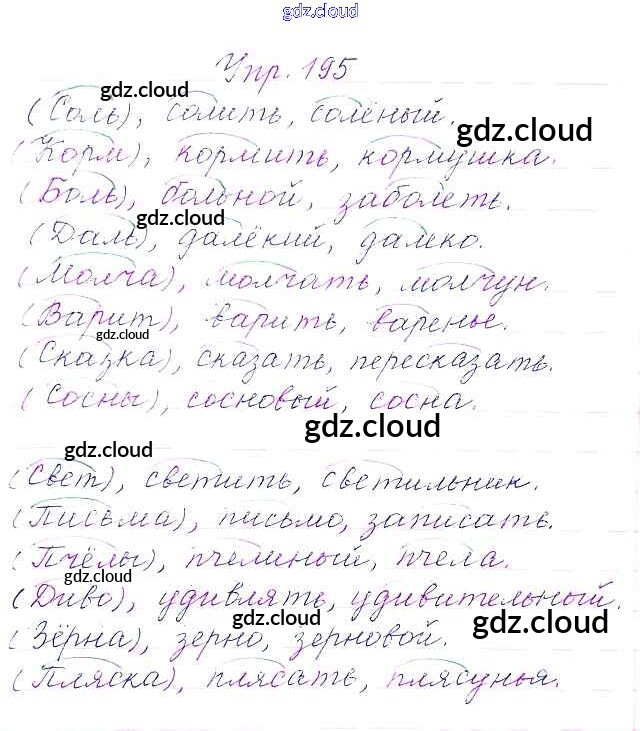 gdz.cloud
Упр. 195
gdz.cloud
(Соль), солить, солёный.
gdz.cloud
(Корм), кормить, кормушка.
(Боль), больной, заболеть.
gdz.cloud
(Даль), далёкий, далеко.
(Молча), молчать, молчун.
(Варит), варить, варенье.
gdz.cloud
(Сказка), сказать, пересказать.
(Сосны), сосновый, сосна.
gdz.cloud
gdz.cloud
(Свет), светить, светильник.
(Письма), письмо, записать.
(Пчёлы), пчелиный, пчела.
gdz.cloud
(Диво), удивлять, удивительный.
gdz.cloud
(Зёрна), зерно, зерновой.
(Пляска), плясать, плясунья.